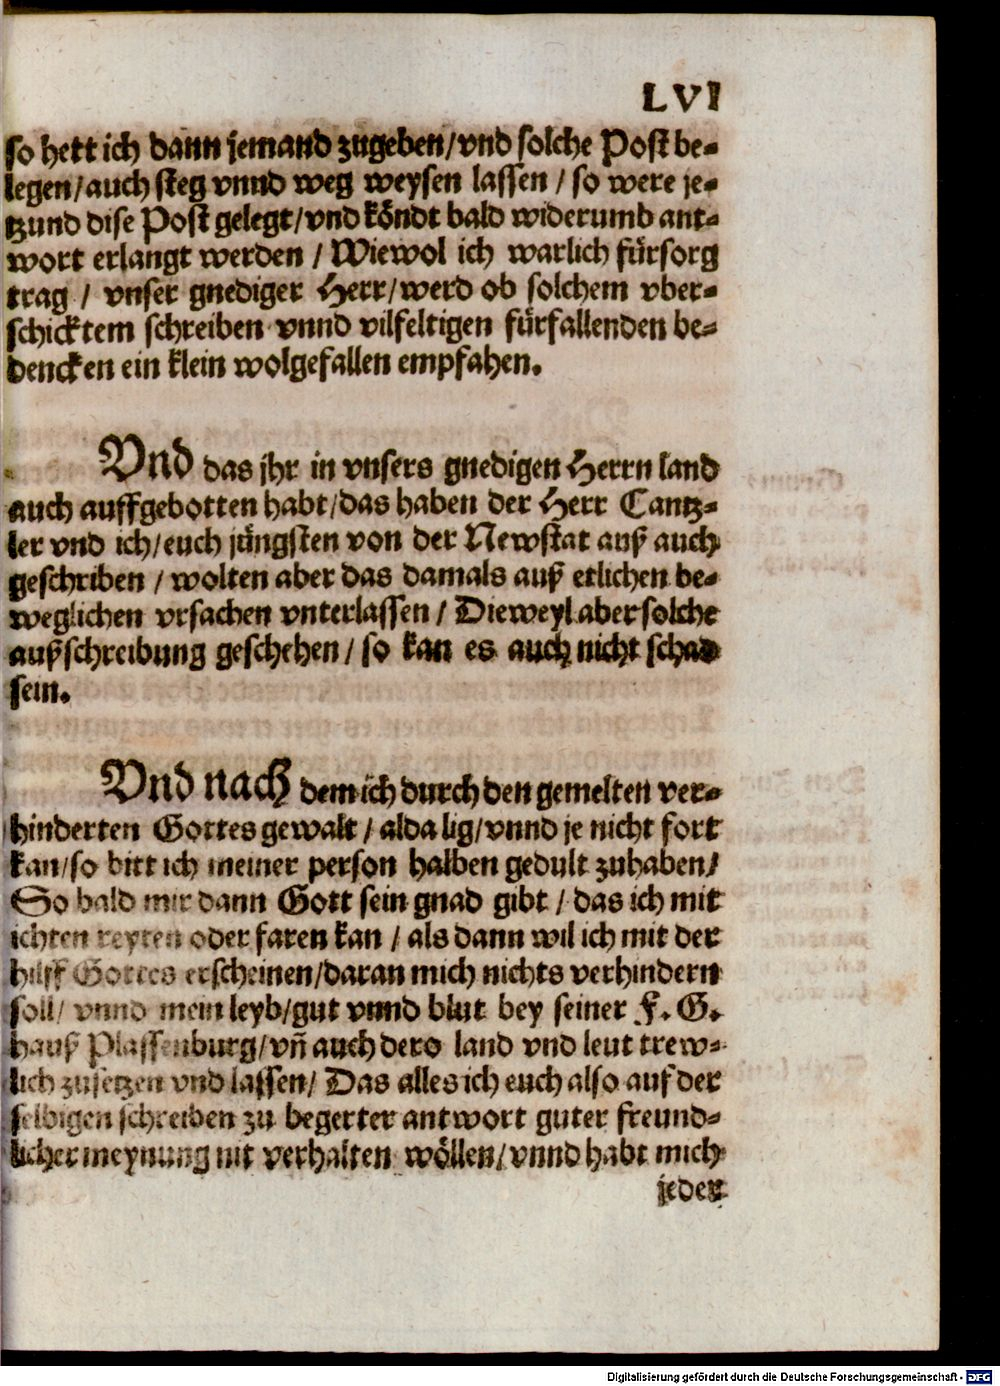 LVI
so hett ich dann jemand zugeben/vnd solche Post be-
legen/auch steg vnnd weg weysen lassen / so were je-
tzund dise Post gelegt/vnd köndt bald widerumb ant-
wort erlangt werden / Wiewol ich warlich fürsorg
trag / vnser gnediger Herr/werd ob solchem vber-
schicktem schreiben vnnd vilfeltigen fürfallenden be-
dencken ein klein wolgefallen empfahen.
Vnd das jhr in vnsers gnedigen Herrn land
auch auffgebotten habt/das haben der Herr Cantz-
ler vnd ich/euch jüngsten von der Newstat auß auch
geschriben / wolten aber das damals auß etlichen be-
weglichen vrsachen vnterlassen / Dieweyl aber solche
außschreibung geschehen/ so kan es auch nicht schad
sein.
Vnd nach dem ich durch den gemelten ver-
hinderten Gottes gewalt / alda lig/vnnd je nicht fort
kan/so bitt ich meiner person halben gedult zuhaben/
So bald mir dann Gott sein gnad gibt / das ich mit
ichten reyten oder faren kan / als dann wil ich mit der
hilff Gottes erscheinen/daran mich nichts verhindern
soll/ vnnd mein leyb/gut vnnd blut bey seiner F. G.
hauß Plassenburg/vñ auch dero land vnd leut trew-
lich zusetzen vnd lassen/ Das alles ich euch also auf der
selbigen schreiben zu begerter antwort guter freund-
licher meynung nit verhalten wöllen/vnnd habt mich
jeder
Digitalisierung gefördert durch die Deutsche Forschungsgemeinschaft - DFG